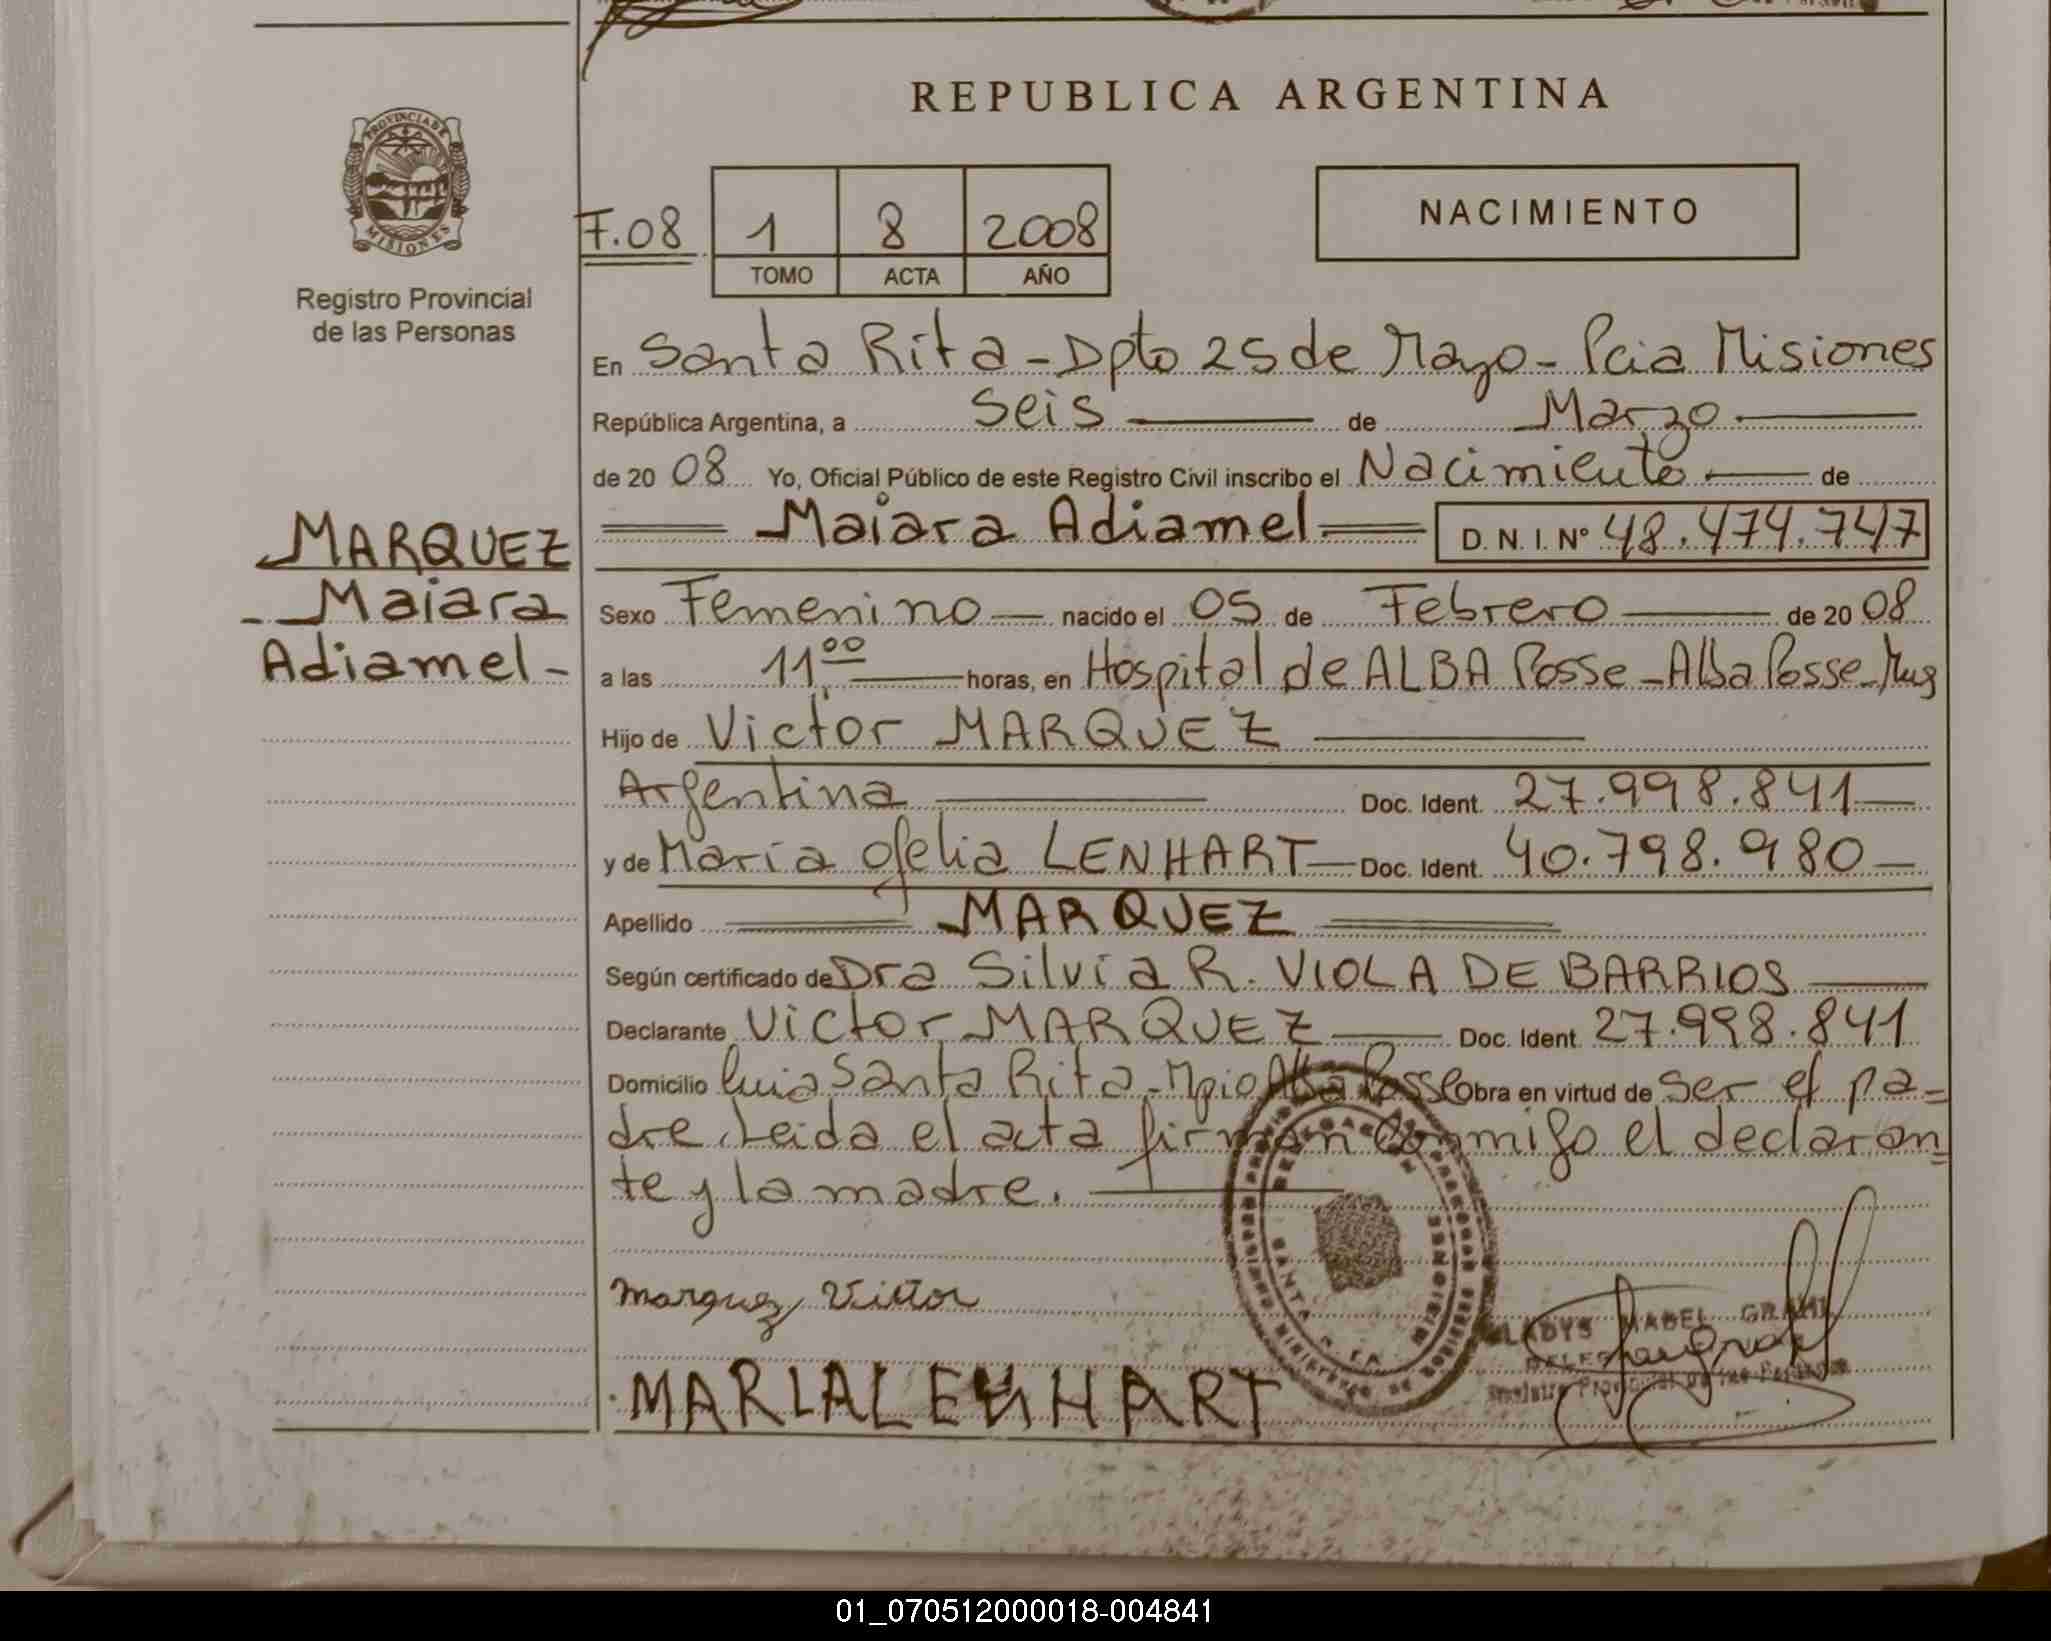 REPUBLICA ARGENTINA
PROVINCIA DE MISIONES
Registro Provincial
de las Personas
F.08
1 8 2008
TOMO ACTA AÑO
NACIMIENTO
En Santa Rita - Dpto 25 de Mayo - Pcia Misiones
República Argentina, a Seis de Marzo
de 20 08 Yo, Oficial Público de este Registro Civil inscribo el Nacimiento de
Maiara Adiamel D. N. I. Nº 48.474.747
MARQUEZ
Maiara
Adiamel -
Sexo Femenino nacido el 05 de Febrero de 20 08
a las 11.00 horas, en Hospital de ALBA Posse - Alba Posse -
Hijo de Victor MARQUEZ
Argentina Doc. Ident. 27.998.841
y de Maria Ofelia LENHART Doc. Ident. 40.798.980
Apellido MARQUEZ
Según certificado de Dra Silvia R. VIOLA DE BARRIOS
Declarante Victor MARQUEZ Doc. Ident. 27.998.841
Domicilio Santa Rita - Mpio Alba Posse Obra en virtud de ser el pa=
dre. Leida el acta firman conmigo el declaran=
te y la madre.
Marquez Victor
MARIA LENHART
GLADYS MABEL
Registro Provincial de las Personas
01_070512000018-004841